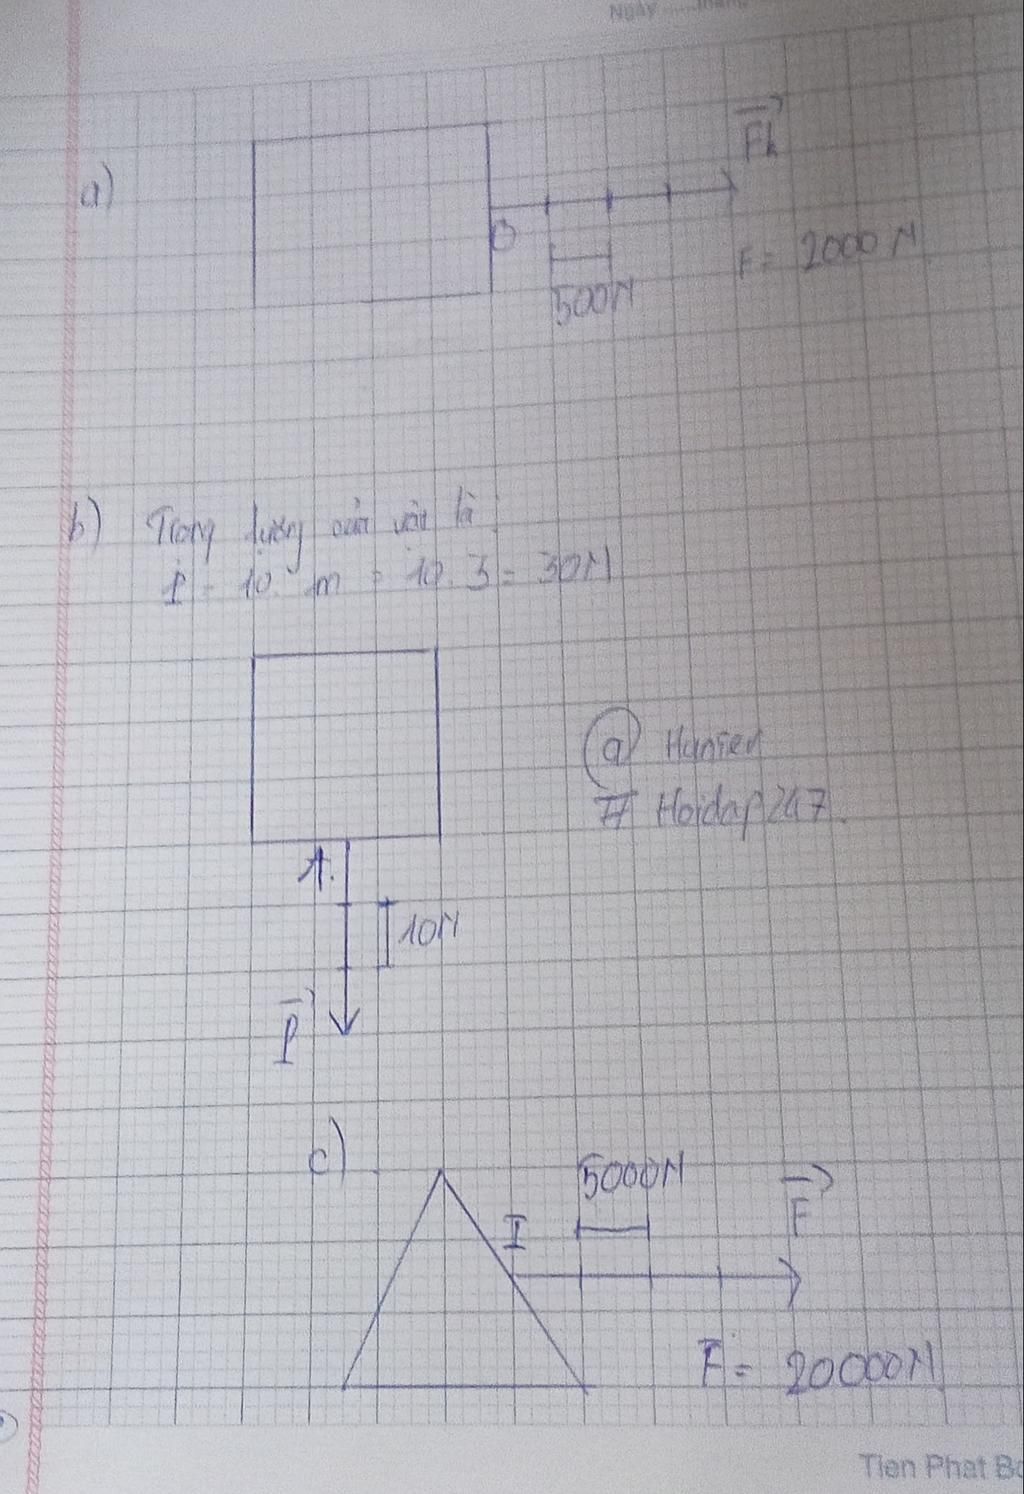 Ngày ......tháng
a)
Fk
O
500N
F = 2000 N
b) Trọng lượng của vật là
P = 10. m = 10. 3 = 30N
@ Hansen
# Hoidap247.
A.
10N
P
c)
5000N
F
I
F = 20000N
Tien Phat Bo